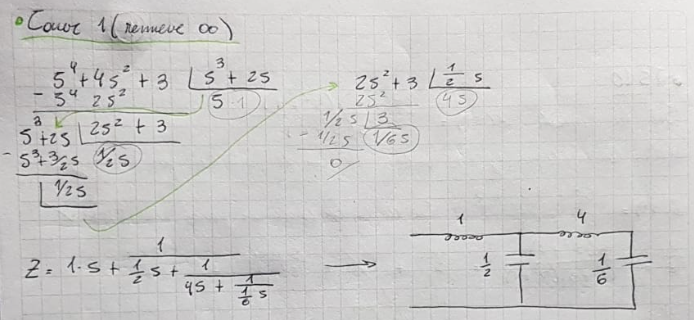 Cauer 1 (remueve ∞)
s⁴ + 4s² + 3 | s³ + 2s
- s⁴ 2s² s·1
s³ + 2s | 2s² + 3
- s³ + 3/2 s 1/2 s
1/2 s
2s² + 3 | 1/2 s
2s² 4s
1/2 s | 3
- 1/2 s 1/6 s
0
Z = 1·s + 1/(1/2 s + 1/(4s + 1/(1/6 s)))
1 4
1/2 1/6